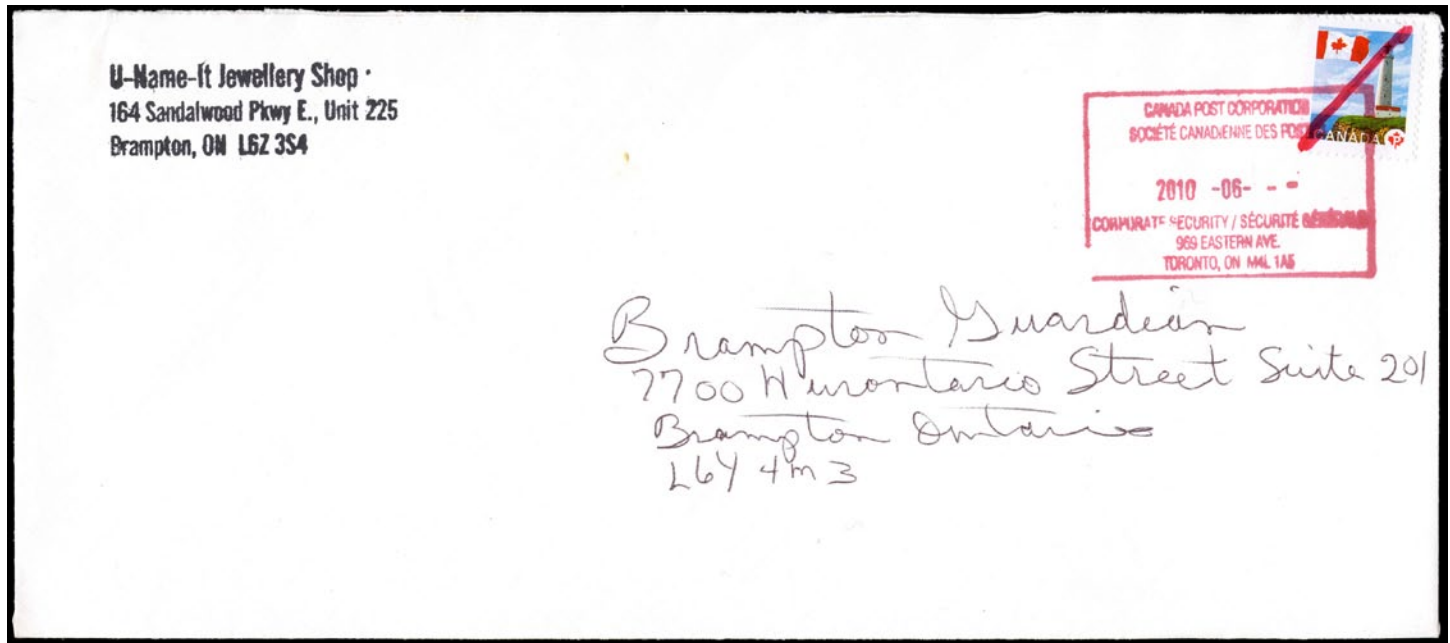 U-Name-It Jewellery Shop
164 Sandalwood Pkwy E., Unit 225
Brampton, ON L6Z 3S4
CANADA POST CORPORATION
SOCIÉTÉ CANADIENNE DES POST
2010 -06- - -
CORPORATE SECURITY / SÉCURITÉ
969 EASTERN AVE.
TORONTO, ON M4L 1A5
CANADA P
Brampton Guardian
7700 Hurontario Street Suite 201
Brampton Ontario
L6Y 4M3